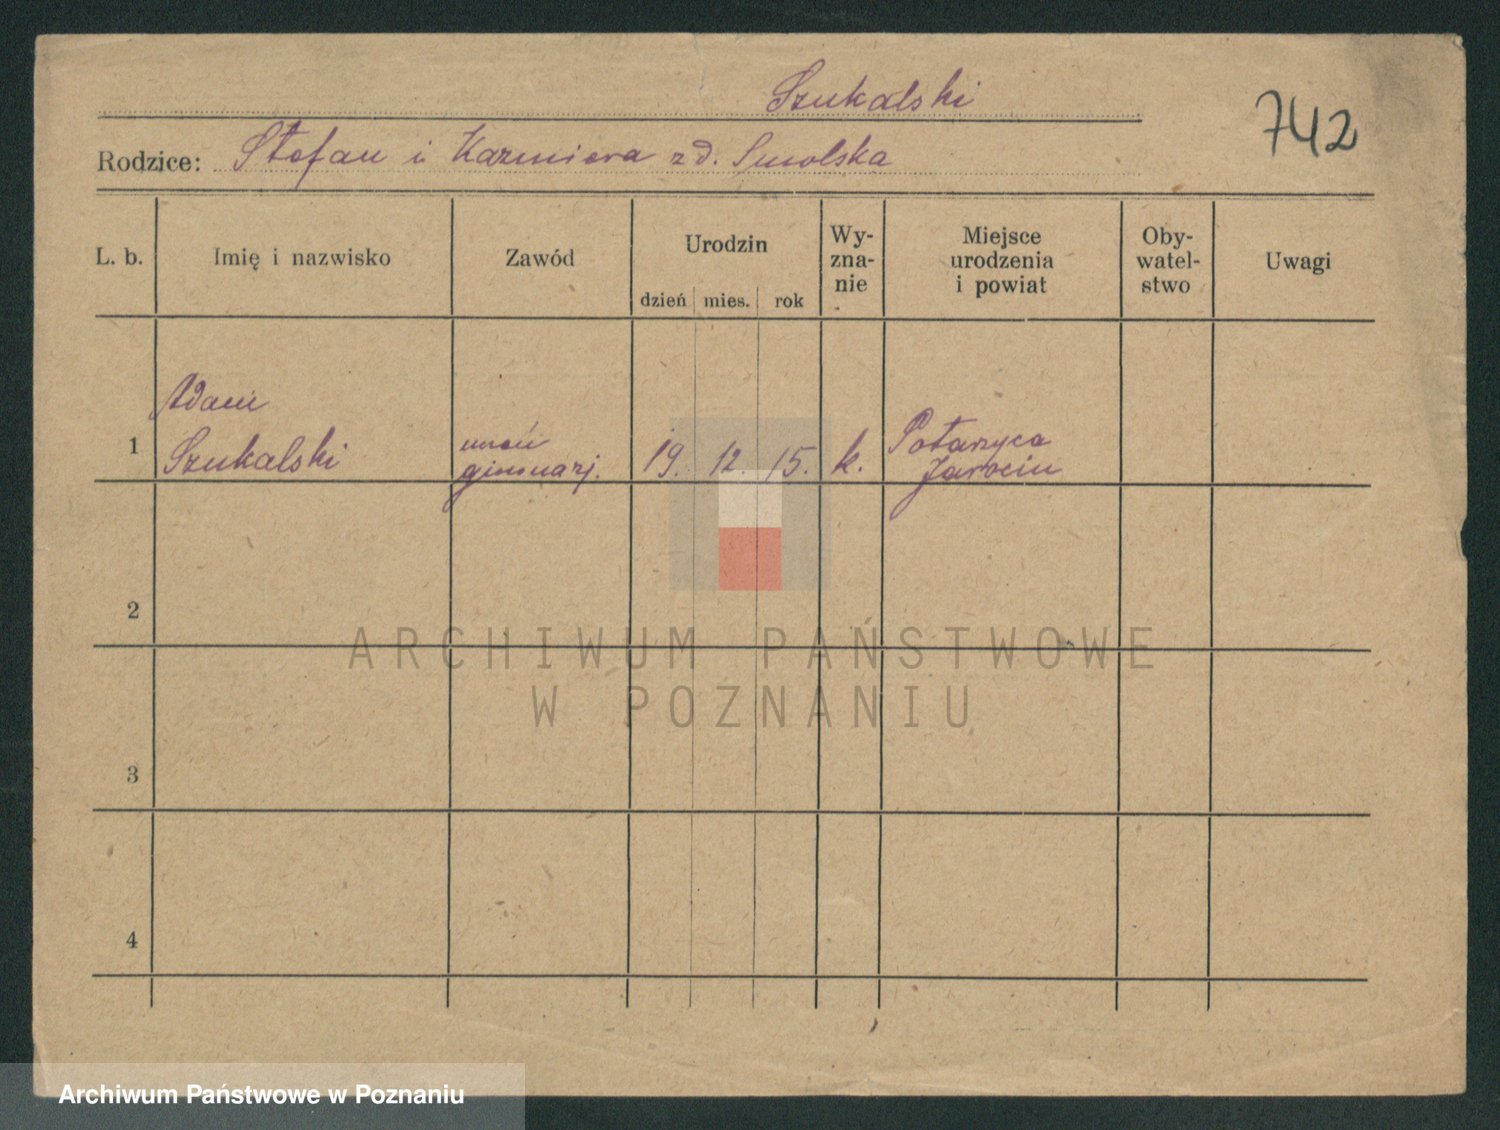 Szukalski
742
Rodzice: Stefan i Kazmiera zd. Smolska
L. b.
Imię i nazwisko
Zawód
Urodzin
dzień mies. rok
Wy-
zna-
nie
Miejsce
urodzenia
i powiat
Oby-
watel-
stwo
Uwagi
1
Adam
Szukalski
uczeń
gimnazj.
19. 12. 15.
k.
Potarzyca
Jarocin
2
3
4
ARCHIWUM PAŃSTWOWE
W POZNANIU
Archiwum Państwowe w Poznaniu